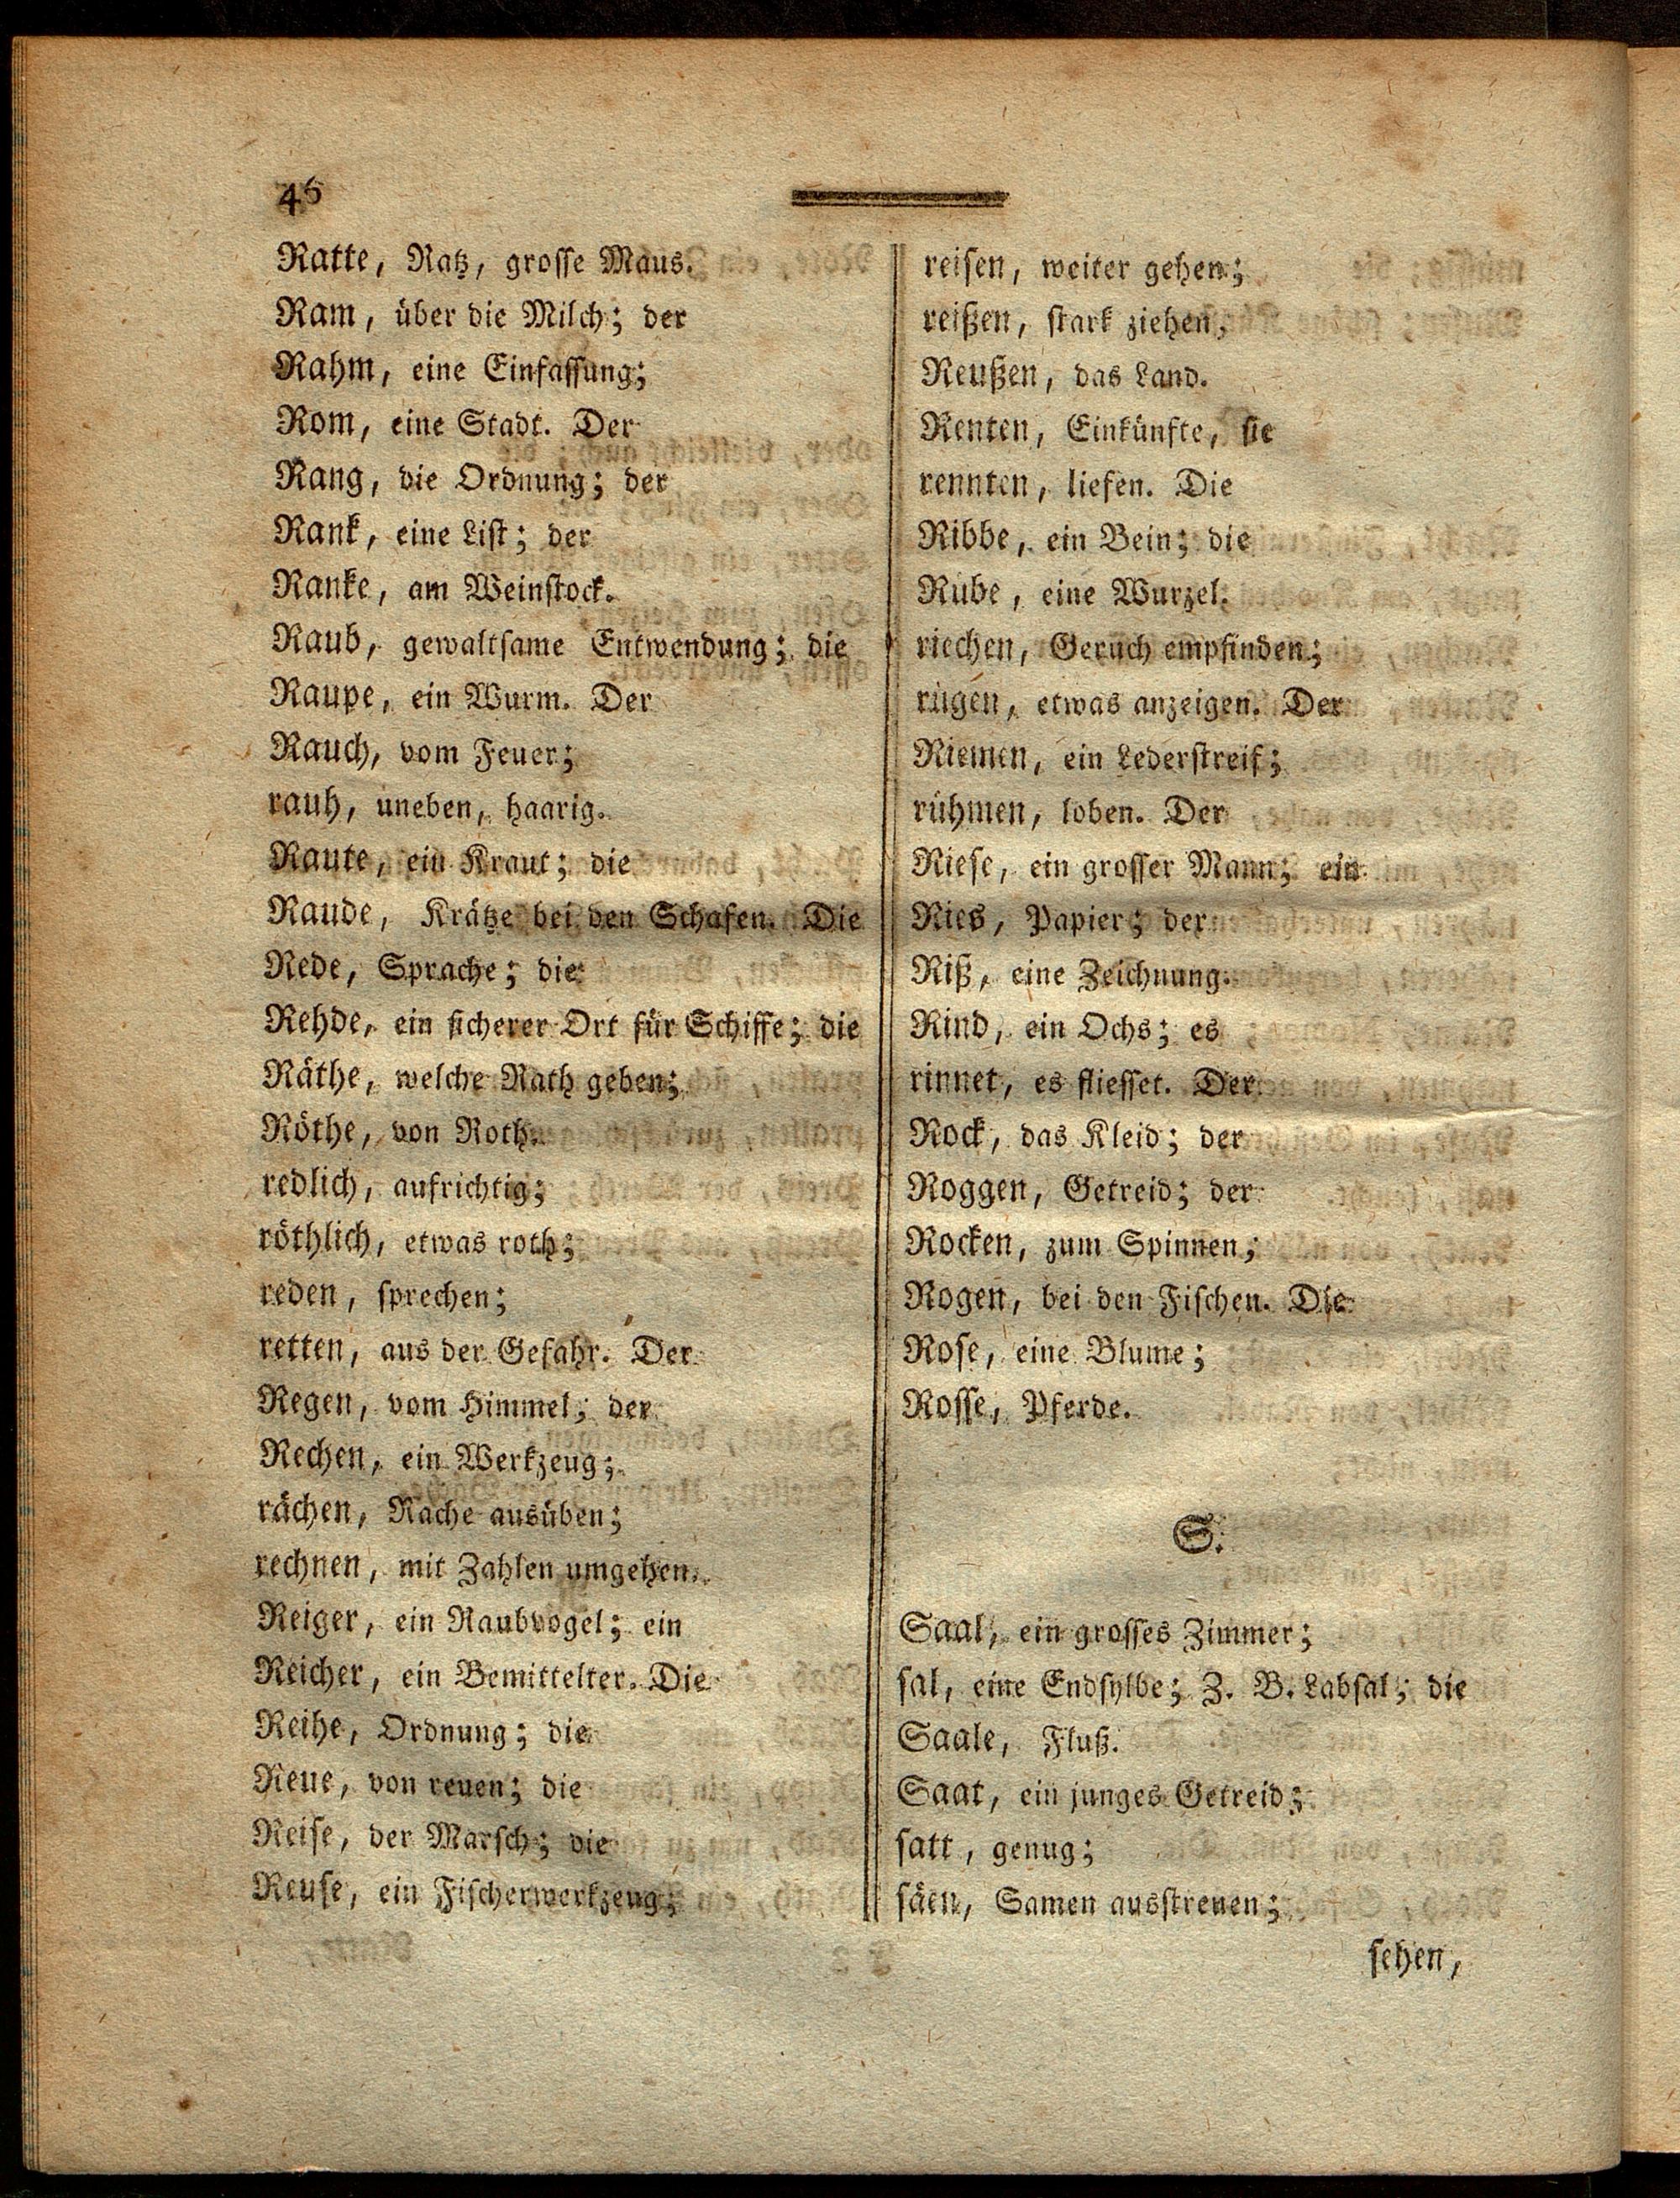 46
Ratte, Ratz, grosse Maus.
Ram, über die Milch; der
Rahm, eine Einfassung;
Rom, eine Stadt. Der
Rang, die Ordnung; der
Rank, eine List; der
Ranke, am Weinstock.
Raub, gewaltsame Entwendung; die
Raupe, ein Wurm. Der
Rauch, vom Feuer;
rauh, uneben, haarig.
Raute, ein Kraut; die
Raude, Krätze bei den Schafen. Die
Rede, Sprache; die
Rehde, ein sicherer Ort für Schiffe; die
Räthe, welche Rath geben;
Röthe, von Roth.
redlich, aufrichtig;
röthlich, etwas roth;
reden, sprechen;
retten, aus der Gefahr. Der
Regen, vom Himmel; der
Rechen, ein Werkzeug;
rächen, Rache ausüben;
rechnen, mit Zahlen umgehen.
Reiger, ein Raubvogel; ein
Reicher, ein Bemittelter. Die
Reihe, Ordnung; die
Reue, von reuen; die
Reise, der Marsch; die
Reuse, ein Fischerwerkzeug;
reisen, weiter gehen;
reißen, stark ziehen,
Reußen, das Land.
Renten, Einkünfte, sie
rennten, liefen. Die
Ribbe, ein Bein; die
Rübe, eine Wurzel.
riechen, Geruch empfinden;
rügen, etwas anzeigen. Der
Riemen, ein Lederstreif;
rühmen, loben. Der
Riese, ein grosser Mann; ein
Ries, Papier; der
Riß, eine Zeichnung.
Rind, ein Ochs; es
rinnet, es fliesset. Der
Rock, das Kleid; der
Roggen, Getreid; der
Rocken, zum Spinnen;
Rogen, bei den Fischen. Die
Rose, eine Blume;
Rosse, Pferde.
S.
Saal, ein grosses Zimmer;
sal, eine Endsylbe; Z. B. Labsal; die
Saale, Fluß.
Saat, ein junges Getreid;
satt, genug;
säen, Samen ausstreuen;
sehen,